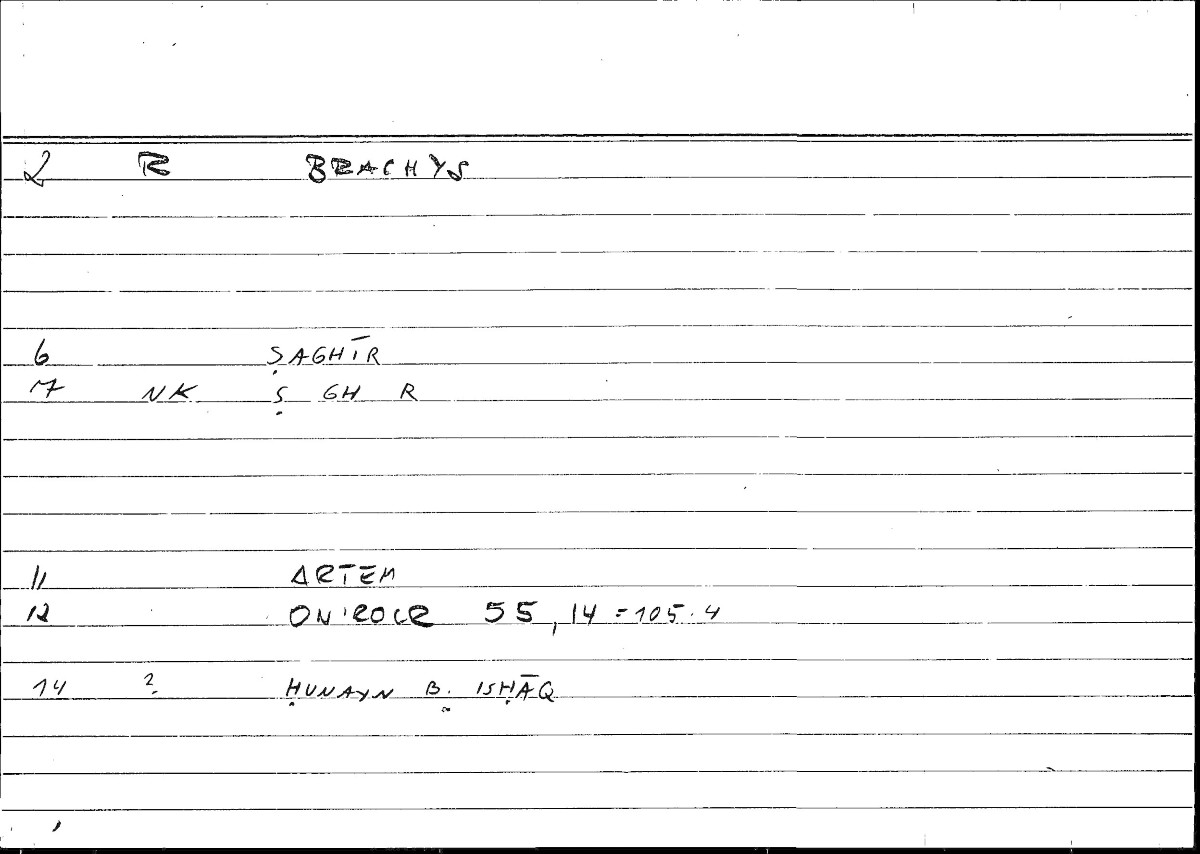 2 R BRACHYS
6 ṢAGHĪR
7 NK Ṣ GH R
11 ARTEM
12 ONIROCR 55,14 = 105.4
14 ? ḤUNAYN B. ISḤĀQ